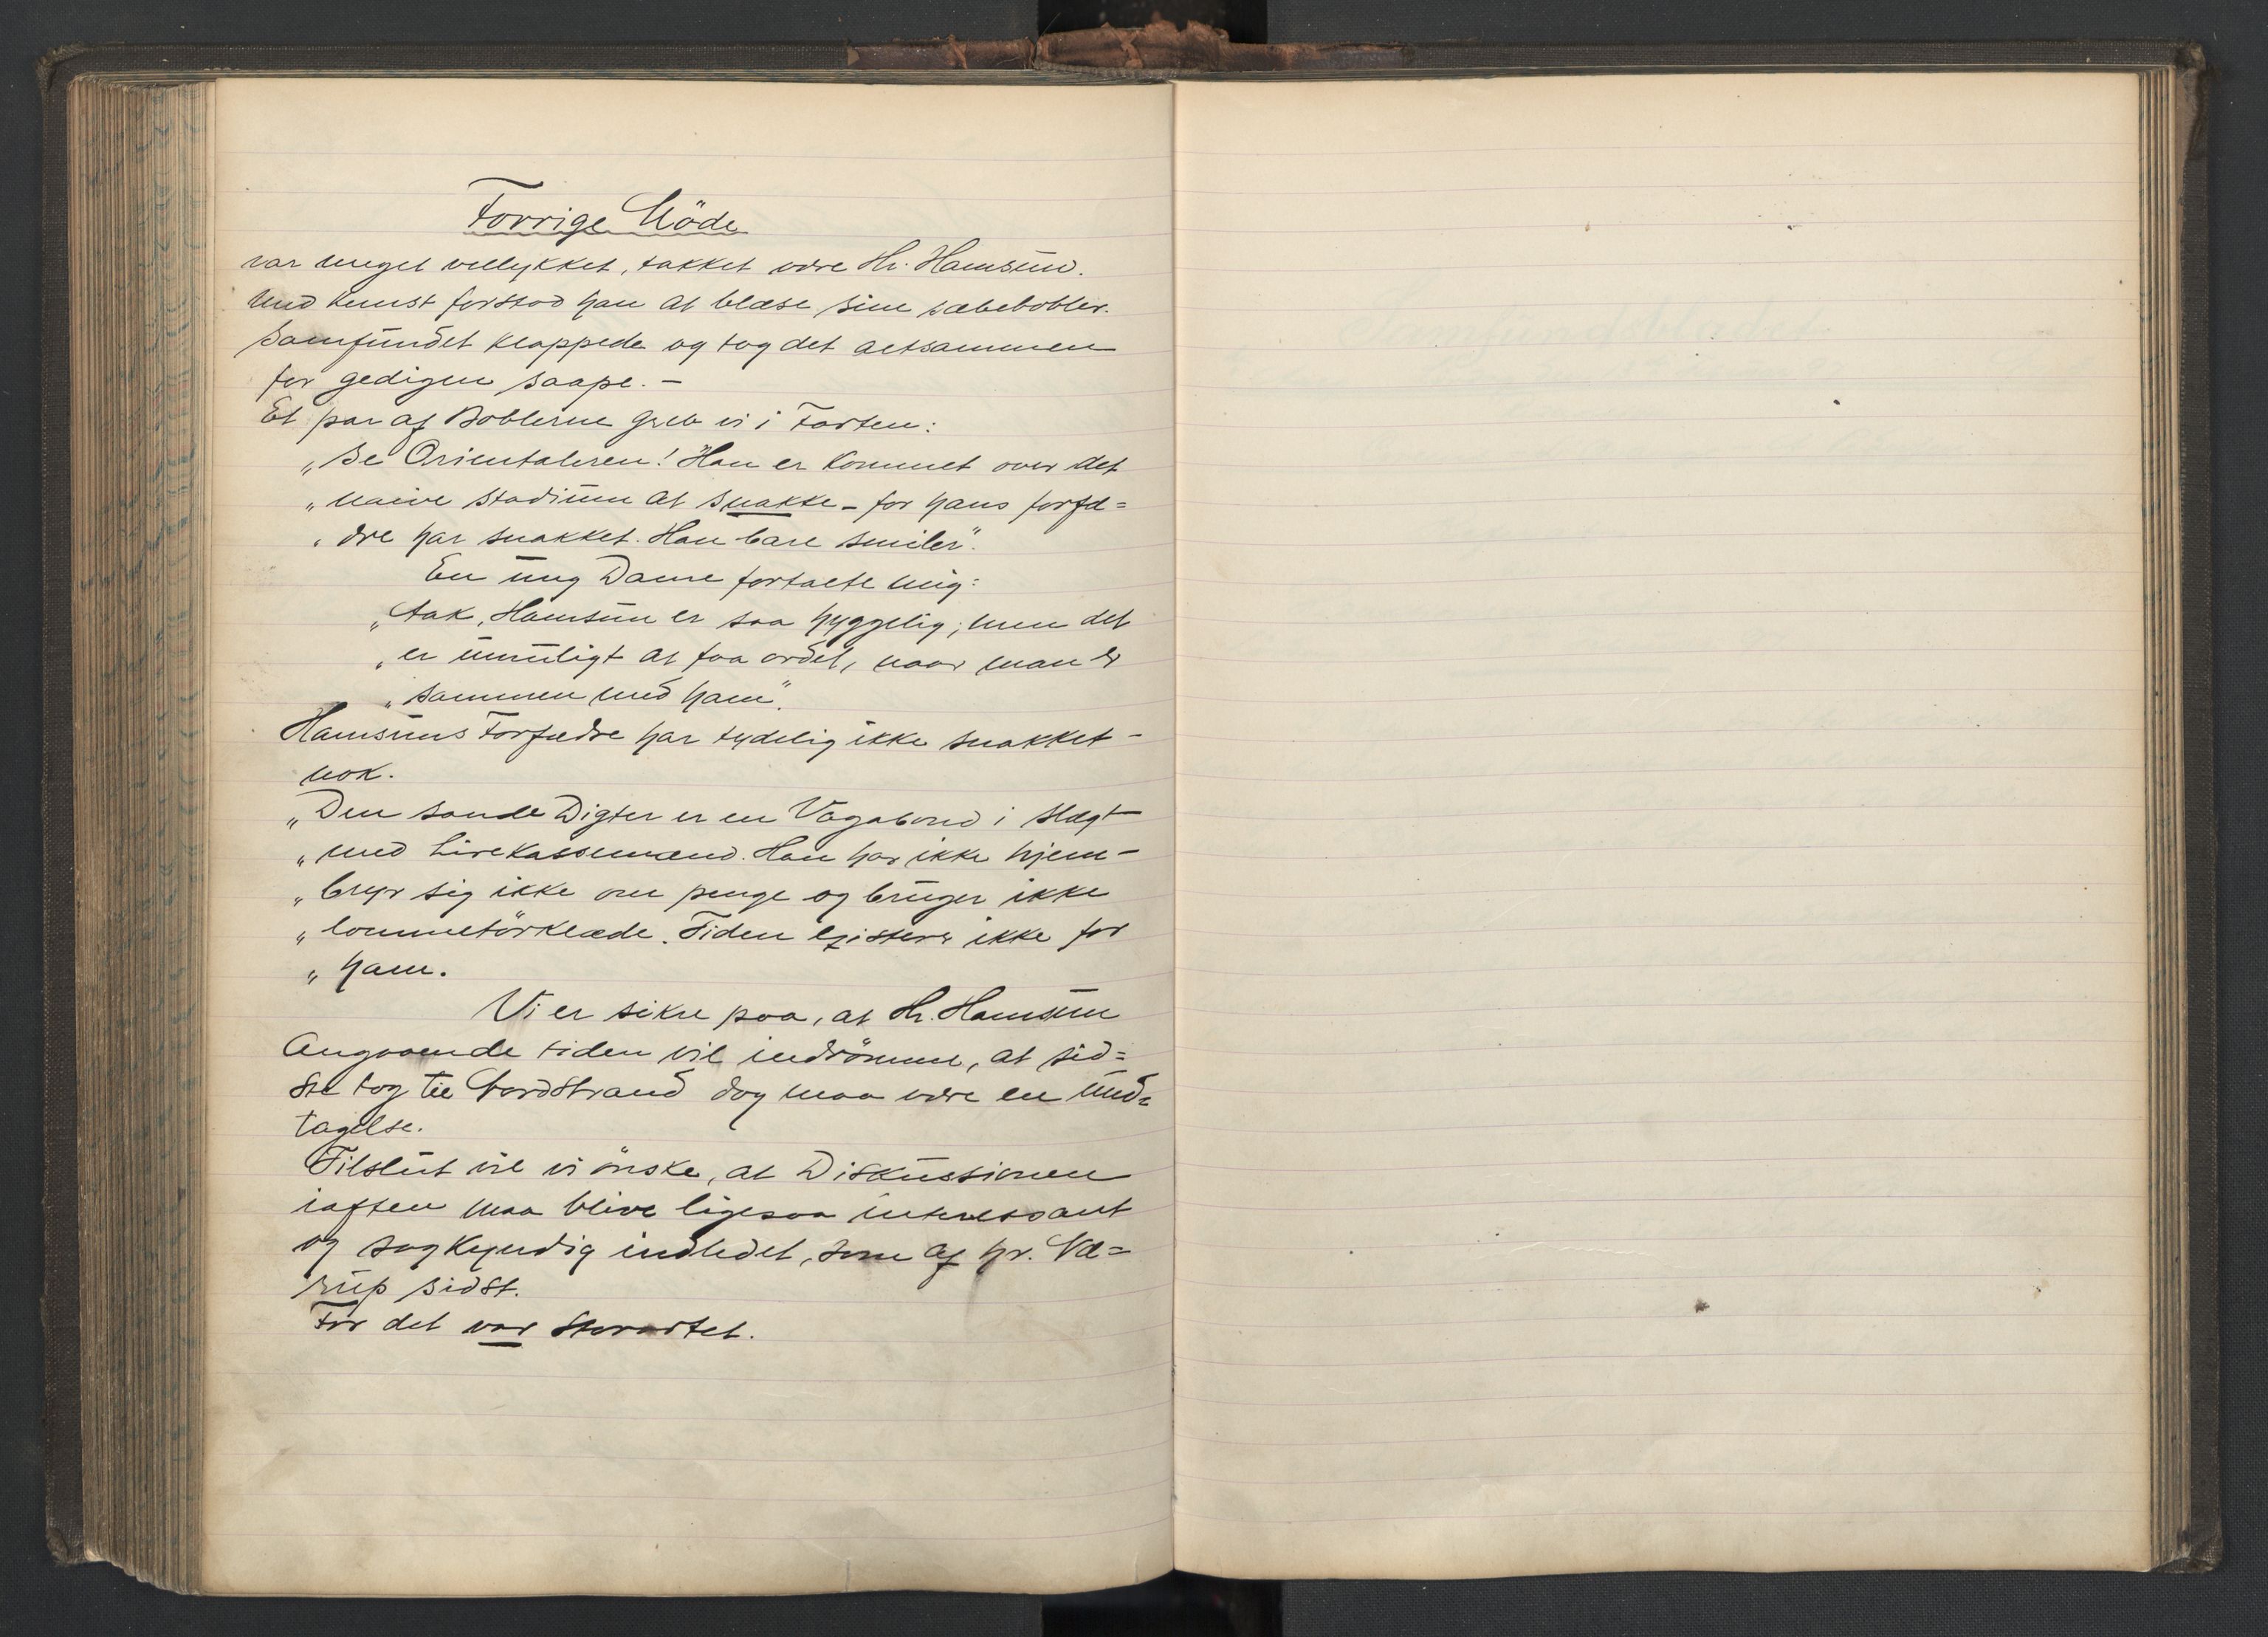 Forrige Möde
var meget vellykket, takket være Hr. Hamsun.
Med kunst forstod han at blæse sine sæbebobler.
Samfundet klappede og tog det altsammen
for gedigen saape. —
Et par af Boblerne greb vi i Farten:
„Se Orientaleren! Han er kommet over det
„naive stadium at snakke - for hans forfæ=
„dre har snakket. Han bare smiler".
En ung Dame fortalte mig:
„tak, Hamsun er saa hyggelig; men det
„er umuligt at faa ordet, naar man er
„sammen med ham".
Hamsuns Forfædre har tydelig ikke snakket -
nok.
„Den sande Digter er en Vagabond i slægt
„med Lirekassemænd. Han har ikke hjem -
„bryr sig ikke om penge og bruger ikke
„lommetörklæde. Tiden existerer ikke for
„ham.
Vi er sikre paa, at Hr. Hamsun
Angaaende tiden vil indrömme, at sid=
ste tog til Nordstrand dog maa være en und=
tagelse.
Tilslut vil vi önske, at Diskussionen
iaften maa blive ligesaa interessant
og sagkyndig indledet, som af hr. Næ=
rup sidst.
For det var storartet.
Samfundsbladet